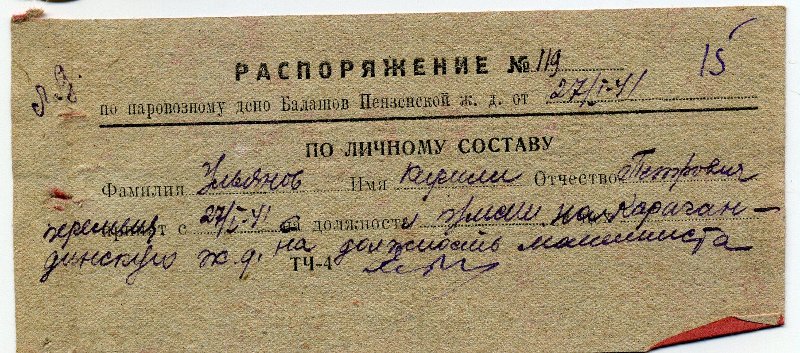 РАСПОРЯЖЕНИЕ № 119 15
л.д.
по паровозному депо Балашов Пензенской ж. д. от 27/I-41
ПО ЛИЧНОМУ СОСТАВУ
Фамилия Ульянов Имя Кирилл Отчество Петрович
перемещ с 27/I-41 на должность на Караган-
динскую ж.д. на должность машиниста
ТЧ-4